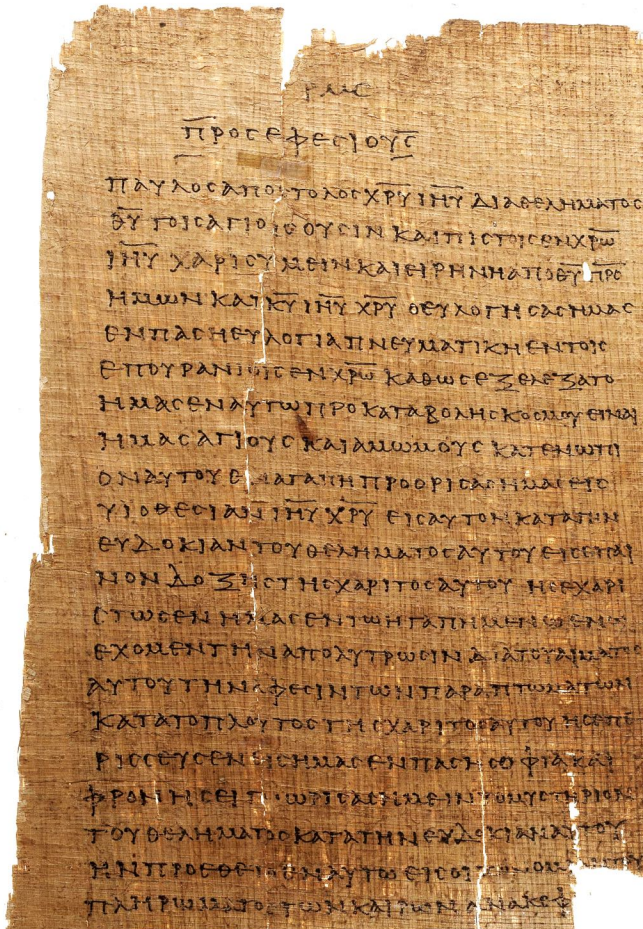 ΡΜϚ
ΠΡΟΣ ΕΦΕΣΙΟΥΣ
ΠΑΥΛΟΣ ΑΠΟΣΤΟΛΟΣ ΧΡΥ ΙΗΥ ΔΙΑ ΘΕΛΗΜΑΤΟΣ
ΘΥ ΤΟΙΣ ΑΓΙΟΙΣ ΟΥΣΙΝ ΚΑΙ ΠΙΣΤΟΙΣ ΕΝ ΧΡΩ
ΙΗΥ ΧΑΡΙΣ ΥΜΕΙΝ ΚΑΙ ΕΙΡΗΝΗ ΑΠΟ ΘΥ ΠΡΟ
ΗΜΩΝ ΚΑΙ ΚΥ ΙΗΥ ΧΡΥ Ο ΕΥΛΟΓΗΣΑΣ ΗΜΑΣ
ΕΝ ΠΑΣΗ ΕΥΛΟΓΙΑ ΠΝΕΥΜΑΤΙΚΗ ΕΝ ΤΟΙΣ
ΕΠΟΥΡΑΝΙΟΙΣ ΕΝ ΧΡΩ ΚΑΘΩΣ ΕΞΕΛΕΞΑΤΟ
ΗΜΑΣ ΕΝ ΑΥΤΩ ΠΡΟ ΚΑΤΑΒΟΛΗΣ ΚΟΣΜΟΥ ΕΙΝΑΙ
ΗΜΑΣ ΑΓΙΟΥΣ ΚΑΙ ΑΜΩΜΟΥΣ ΚΑΤΕΝΩΠΙ
ΟΝ ΑΥΤΟΥ ΕΝ ΑΓΑΠΗ ΠΡΟΟΡΙΣΑΣ ΗΜΑΣ ΕΙΣ
ΥΙΟΘΕΣΙΑΝ ΙΗΥ ΧΡΥ ΕΙΣ ΑΥΤΟΝ ΚΑΤΑ ΤΗΝ
ΕΥΔΟΚΙΑΝ ΤΟΥ ΘΕΛΗΜΑΤΟΣ ΑΥΤΟΥ ΕΙΣ ΕΠΑΙ
ΝΟΝ ΔΟΞΗΣ ΤΗΣ ΧΑΡΙΤΟΣ ΑΥΤΟΥ ΗΣ ΕΧΑΡΙ
ΣΤΩΣΕΝ ΗΜΑΣ ΕΝ ΤΩ ΗΓΑΠΗΜΕΝΩ ΕΝ Ω
ΕΧΟΜΕΝ ΤΗΝ ΑΠΟΛΥΤΡΩΣΙΝ ΔΙΑ ΤΟΥ ΑΙΜΑΤΟΣ
ΑΥΤΟΥ ΤΗΝ ΑΦΕΣΙΝ ΤΩΝ ΠΑΡΑΠΤΩΜΑΤΩΝ
ΚΑΤΑ ΤΟ ΠΛΟΥΤΟΣ ΤΗΣ ΧΑΡΙΤΟΣ ΑΥΤΟΥ ΗΣ ΕΠΕ
ΡΙΣΣΕΥΣΕΝ ΕΙΣ ΗΜΑΣ ΕΝ ΠΑΣΗ ΣΟΦΙΑ ΚΑΙ
ΦΡΟΝΗΣΕΙ ΓΝΩΡΙΣΑΣ ΗΜΕΙΝ ΤΟ ΜΥΣΤΗΡΙΟΝ
ΤΟΥ ΘΕΛΗΜΑΤΟΣ ΚΑΤΑ ΤΗΝ ΕΥΔΟΚΙΑΝ ΑΥΤΟΥ
ΗΝ ΠΡΟΕΘΕΤΟ ΕΝ ΑΥΤΩ ΕΙΣ
ΠΛΗΡΩΜΑΤΟΣ ΤΩΝ ΚΑΙΡΩΝ ΑΝΑΚΕΦ